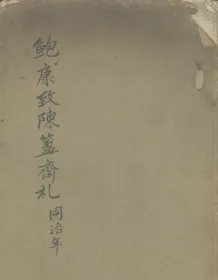 鲍康致陳簠齋札
同治年